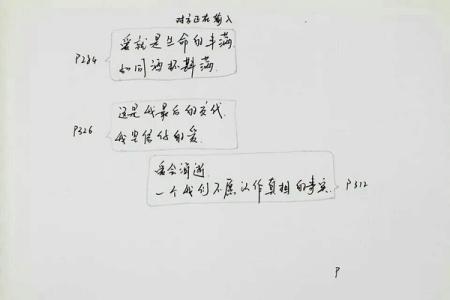 对方正在输入
P284
爱就是生命的丰满
如同酒杯斟满.
P326
这是我最后的交代.
我坚信你的爱.
爱会消逝.
一个我们不愿认作真相的事实.
P312
P